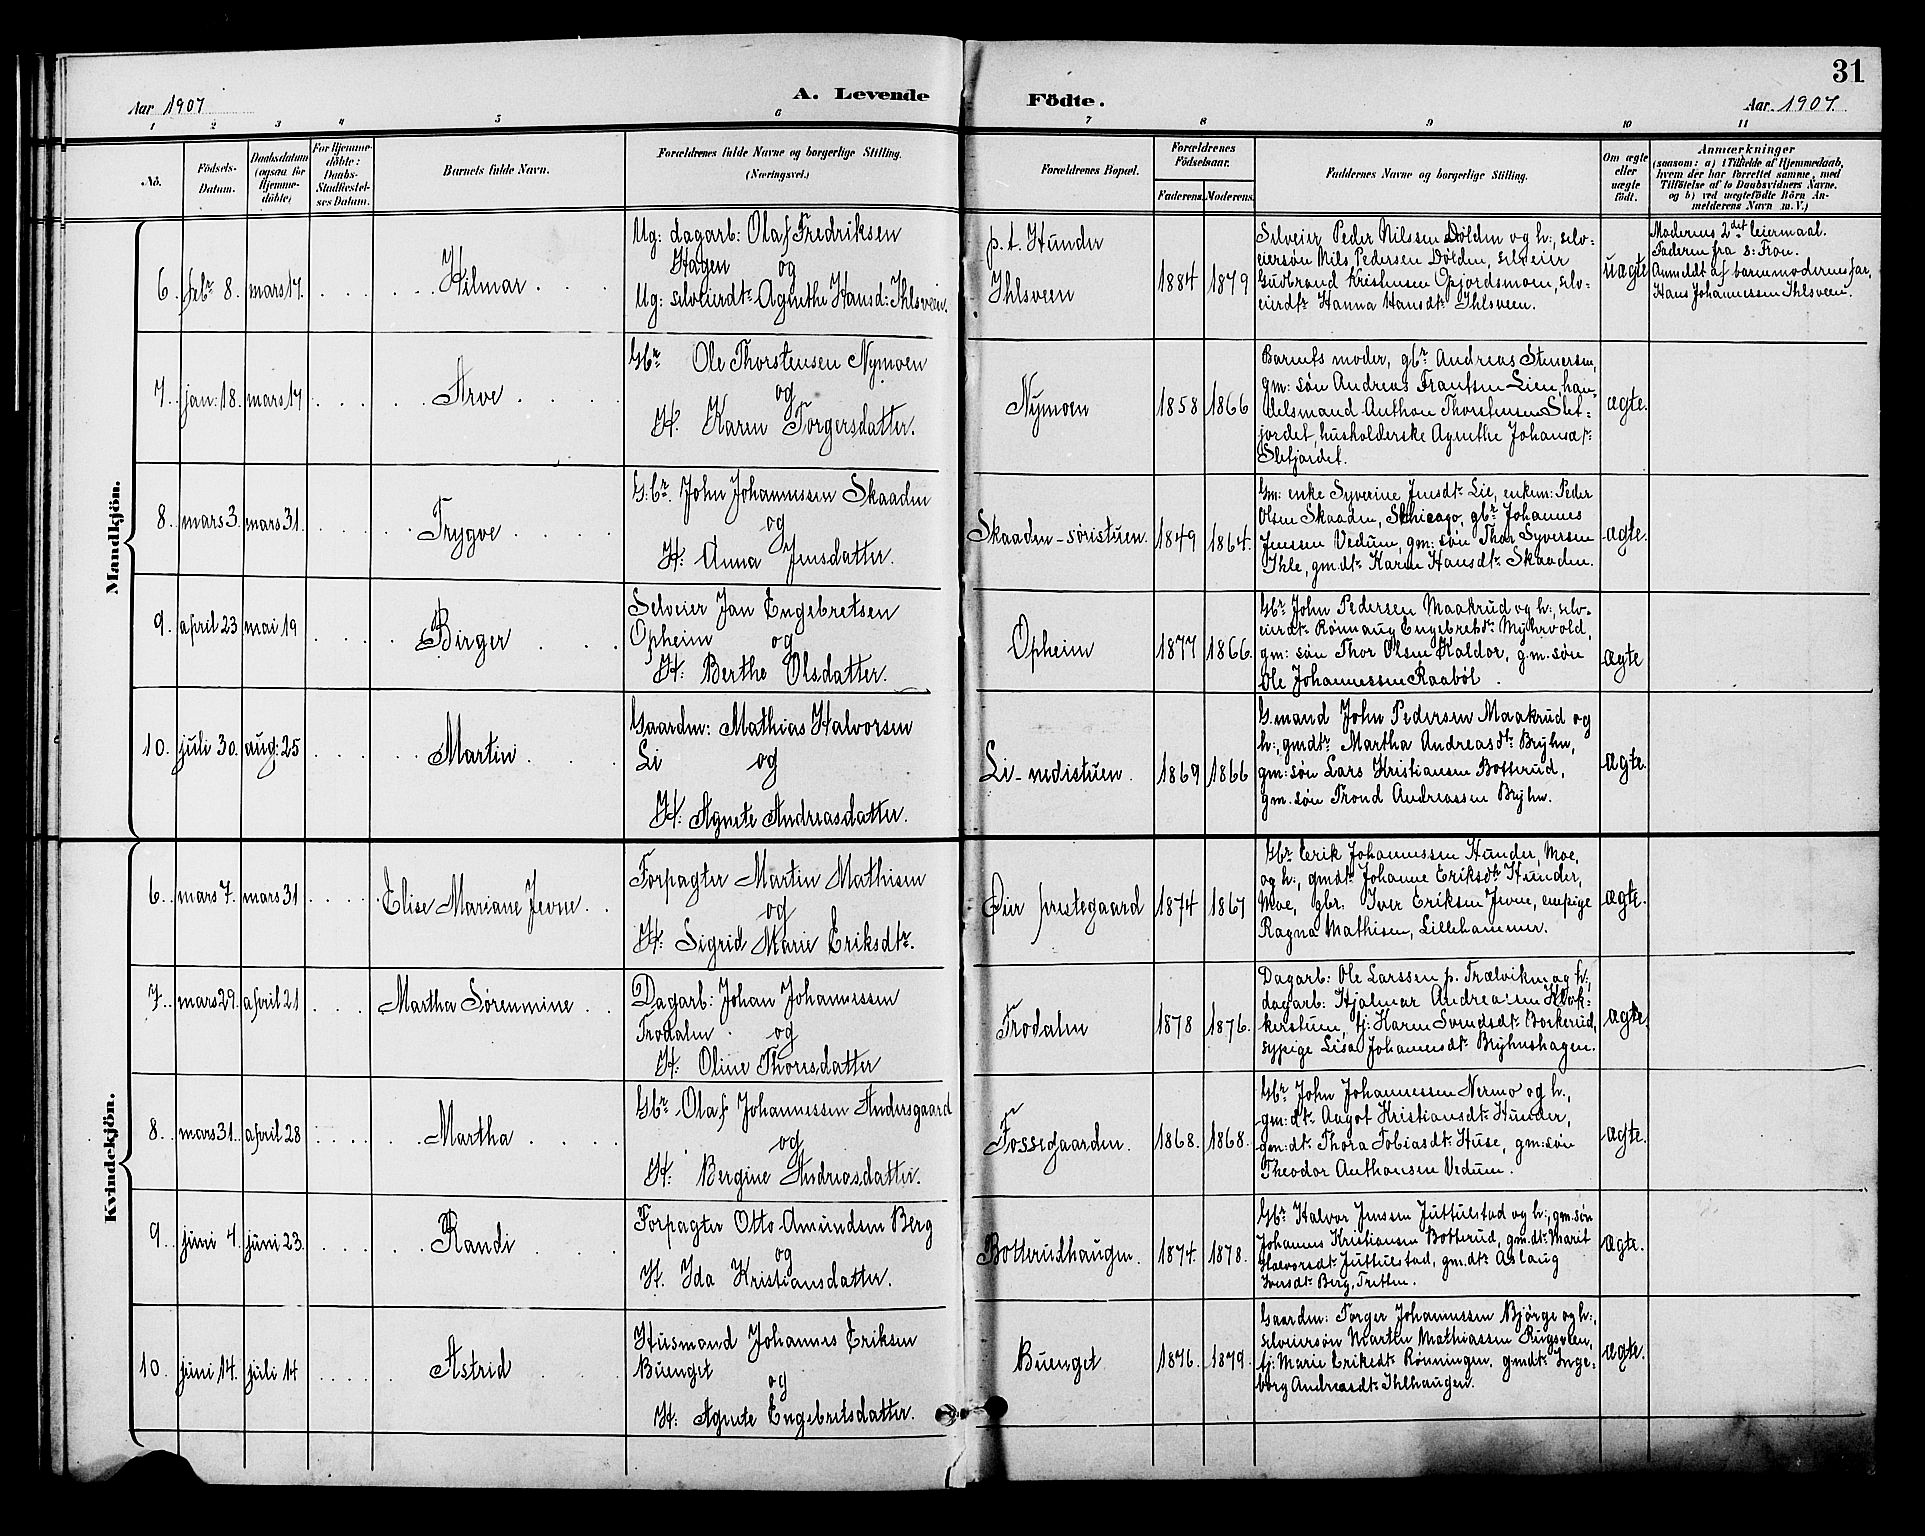 31
Aar 1907
A. Levende Födte.
Aar 1907.
1 2 3 4 5 6 7 8 9 10 11
No.
Födsels-
Datum.
Daabsdatum
(ogsaa for
Hjemme-
döbte)
For Hjemme-
döbte:
Daabs-
Stadfæstel-
ses Datum.
Barnets fulde Navn.
Forældrenes fulde Navne og borgerlige Stilling.
(Næringsvei.)
Forældrenes Bopæl.
Forældrenes
Födselsaar.
Faderens. Moderens.
Faddernes Navne og borgerlige Stilling.
Om ægte
eller
uægte
födt.
Anmærkninger
(saasom: a) i Tilfælde af Hjemmedaab,
hvem der har forrettet samme, med
Tilföielse af to Daabsvidners Navne.
og b) ved uægtefödte Börn An-
melderens Navn m. V.)
Mandkjön.
6. febr 8. mars 17.
Hilmar
Ug: dagarb: Olaf Fredriksen
Hagen og
Ug: selveierdt: Agnethe Hansd: Ihlsveen.
p. t. Hunder
Ihlsveen
1884 1879
Selveier Peder Nilssen Dölden og h:, selv-
eiersøn Nils Pedersen Dölden, selveier
Gudbrand Kristensen Opjordsmoen, selv-
eierdt: Hanna Hansdt: Ihlsveen.
uægte
Moderens 2det leiermaal.
Faderen fra S: Fron.
Anmeldt af barnemoderens far,
Hans Johannessen Ihlsveen.
7. jan: 18. mars 17
Arve
Gbr Ole Thorstensen Nymoen
og
H. Karen Torgersdatter.
Nymoen
1858 1866
Barnets moder, gbr Andreas Stenersen,
gm: søn Andreas Frantsen Lien, han-
delsmand Anthon Thorstensen Slet-
jordet, husholderske Agnethe Johansdt:
Sletjordet.
ægte.
8. mars 3. mars 31.
Trygve
G:br. John Johannessen Skaaden
og
H: Anna Jensdatter.
Skaaden-søristuen.
1849 1864.
Gm: enke Syverine Jensdt: Lie, enkem: Peder
Olsen Skaaden, Schicago, gbr Johannes
Jenssen Vedum, gm: søn Thor Syversen
Ihle, gm.dt: Karen Hansdt: Skaaden.
ægte.
9. april 23 mai 19
Birger
Selveier Jan Engebretsen
Opheim og
H: Berthe Olsdatter.
Opheim
1877 1866.
Gbr John Pedersen Maakrud og h:, selv-
eierdt: Rønnaug Engebretsdt: Myhrvold,
gm: søn Thor Olsen Kaldor, g.m. søn
Ole Johannessen Raaböl.
ægte
10. juli 30. aug: 25
Martin
Gaardm: Mathias Halvorsen
Li og
H: Agnete Andreasdatter.
Li-nedistuen.
1869 1866
G.mand John Pedersen Maakrud og
h:, gmdtr Martha Andreasdtr Bryhn,
gm: søn Lars Kristiansen Botterud,
gm. søn Trond Andreassen Bryhn.
ægte.
Kvindekjön.
6. mars 7. mars 31
Elise Mariane Jevne.
Forpagter Martin Mathisen
og
H: Sigrid Marie Eriksdtr.
Øier prestegaard
1874 1867
Gbr Eerik Johannessen Hunder, Moe,
og h:, gmdt: Johanne Eriksdtr Hunder,
Moe, gbr. Iver Eriksen Jevne, enpige
Ragna Mathisen, Lillehammer.
ægte.
7. mars 29. april 21
Martha Sørenmine
Dagarb: Johan Johannessen
Trodalen og
H: Oline Thoresdatter
Trodalen
1878 1876.
Dagarb: Ole Larssen p. Trælviken og h:,
dagarb: Hjalmar Andreasen Klok-
kerstuen, tj: Karen Svendsdt: Borkerud,
sypige Lisa Johannesdt: Bryhnshagen.
ægte.
8. mars 31. april 28
Martha
Gbr Olaf Johannessen Andersgaard
og
H: Bergine Andreasdatter.
Fossegaarden.
1868. 1868.
Gbr John Johannessen Nermo og h:,
gm: dt: Aagot Kristiansdt: Hunder,
gm: dt: Thora Tobiasdt: Huse, gm: søn
Theodor Anthonsen Vedum.
ægte.
9. juni 4. juni 23.
Randi
Forpagter Otto Amundsen Berg
og
H. Ida Kristiansdatter.
Botterudhaugen.
1874. 1878.
Gbr Halvor Jenssen Juttulstad og h:, gm. søn
Johannes Kristiansen Botterud, gm.dt: Marit
Halvorsdt: Juttulstad, gm.dt: Aslaug
Iversdt: Berg, Tretten.
ægte.
10. juni 14. juli 14
Astrid
Husmand Johannes Eriksen
Buenget og
H: Agnete Engebretsdatter.
Buenget
1876. 1879.
Gaardm: Torger Johannessen Bjørge og h:,
selveiersøn Martin Mathiassen Rugsveen,
tj: Marie Eriksdt: Rønningen, gmdt: Inge-
borg Andreasdt: Ihlhaugen.
ægte.